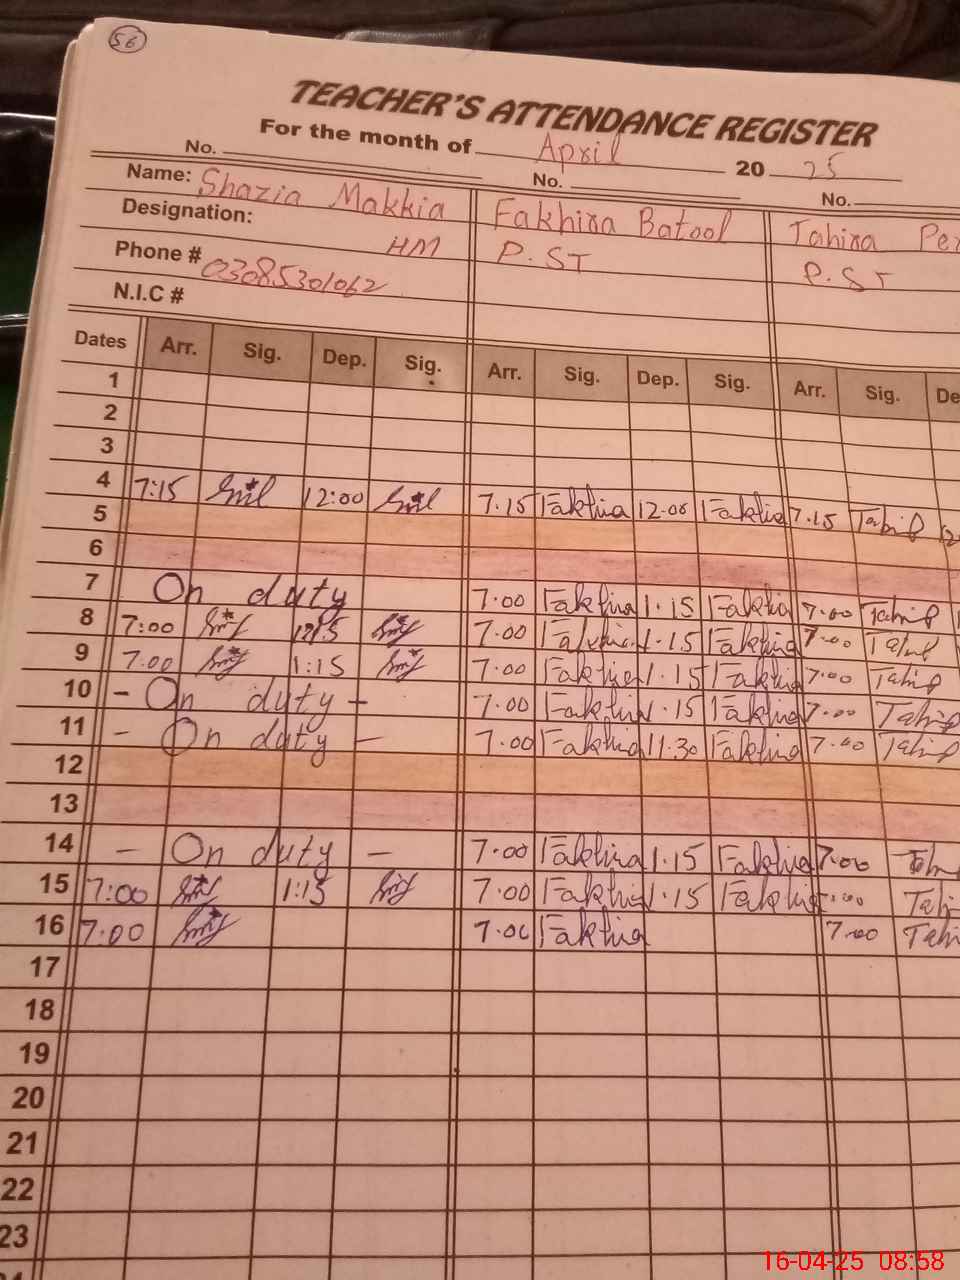 56
TEACHER'S ATTENDANCE REGISTER
For the month of April 20 25
No. No. No.
Name: Shazia Makkia Fakhira Batool Tahira Per
Designation: HM P.ST P.ST
Phone # 03085301062
N.I.C #
Dates Arr. Sig. Dep. Sig. Arr. Sig. Dep. Sig. Arr. Sig. De
1
2
3
4 7:15 12:00 7.15 Fakhira 12.00 Fakhira 7.15
5
6
7 On duty 7.00 Fakhira 1.15 Fakhira 7.00
8 7:00 7.00 Fakhira 1.15 Fakhira 7.00
9 7.00 1:15 7.00 Fakhira 1.15 Fakhira 7.00
10 - On duty - 7.00 Fakhira 1.15 Fakhira 7.00
11 - On duty - 7.00 Fakhira 11.30 Fakhira 7.00
12
13
14 - On duty - 7.00 Fakhira 1.15 Fakhira 7.00
15 7:00 1:15 7.00 Fakhira 1.15 Fakhira 7.00
16 7:00 7.00 Fakhira 7.00
17
18
19
20
21
22
23
16-04-25 08:58